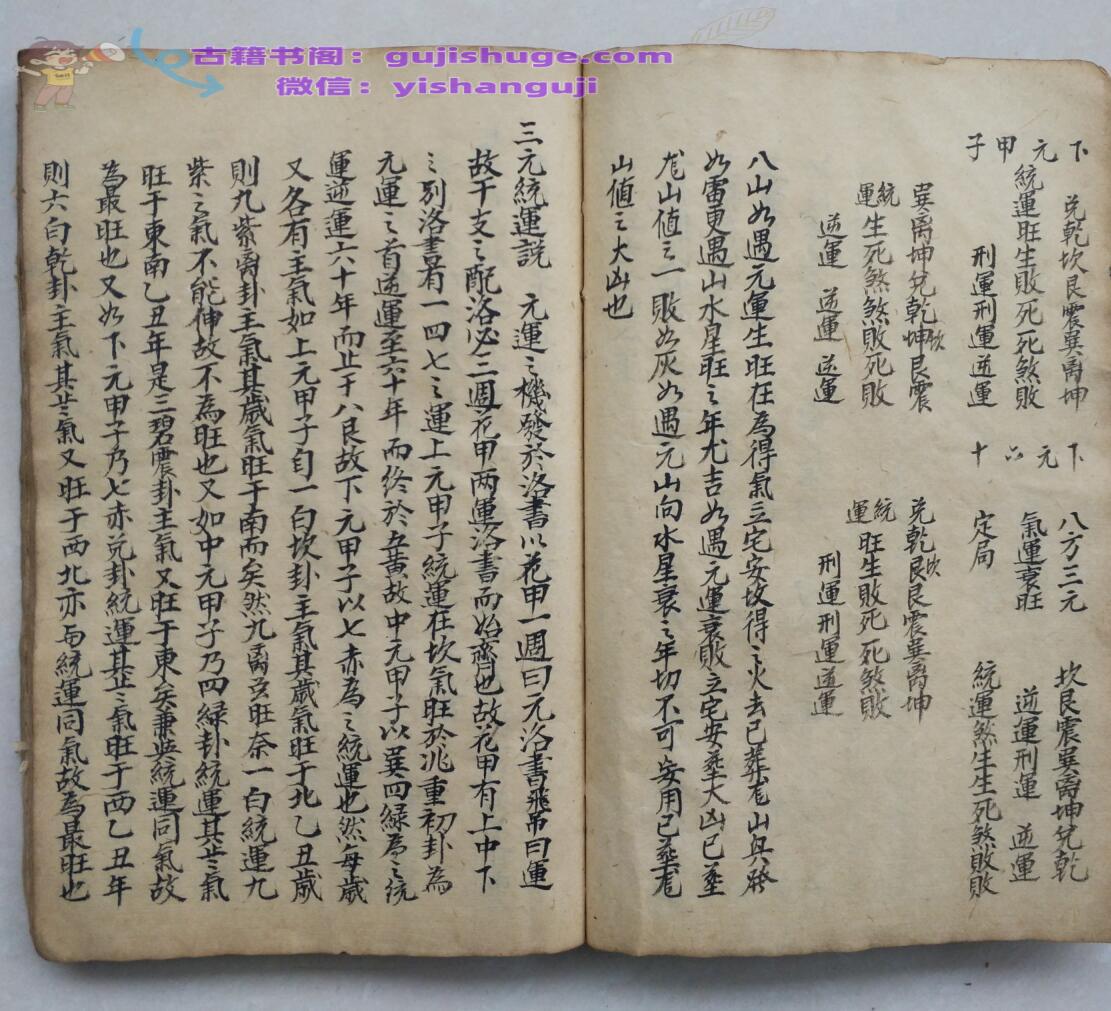 古籍书阁：gujishuge.com
微信：yishanguji
兌乾坎艮震巽离坤
下元甲子
統運旺生敗死死煞敗
刑運刑運逆運
巽离坤兌乾坎坤艮震
統運生死煞煞敗死敗
逆運 逆運 逆運
下元六十
八方三元
氣運衰旺
定局
兌乾坎艮艮震巽离坤
統運旺生敗死死煞敗
刑運刑運逆運
坎艮震巽离坤兌乾
逆運刑運 逆運
統運煞生生死煞敗敗
八山如遇元運生旺在為得氣立宅安坟得之火去已葬龙山兴發
如雷更遇山水星旺之年尤吉如遇元運衰敗立宅安葬大凶已葬
龙山值之一敗如灰如遇元山向水星衰之年切不可妄用已葬龙
山值之大凶也
三元統運説 元運之機發於洛書以花甲一週曰元洛書飛吊曰運
故干支之配洛必三週花甲两運洛書而始齊也故花甲有上中下
之别洛書有一四七之運上元甲子統運在坎氣旺於兆重初卦為
元運之首逆運至六十年而終於五黄故中元甲子以巽四緑為之統
運逆運六十年而止于八艮故下元甲子以七赤為之統運也然每歲
又各有主氣如上元甲子自一白坎卦主氣其歲氣旺于北乙丑歲
則九紫离卦主氣其歲氣旺于南而矣然九离雖旺奈一白統運九
紫之氣不能伸故不為旺也又如中元甲子乃四緑卦統運其年氣
旺于東南乙丑年是三碧震卦主氣又旺于東矣兼與統運同氣故
為最旺也又如下元甲子乃七赤兌卦統運其年之氣旺于西乙丑年
則六白乾卦主氣其年氣又旺于西北亦與統運同氣故為最旺也